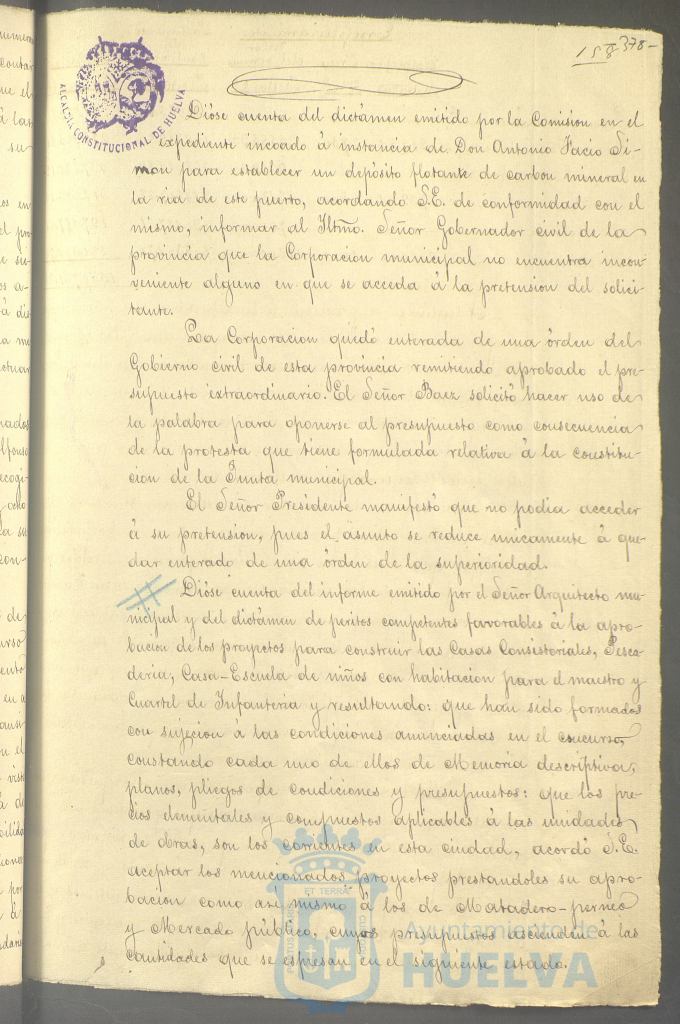 158 378-
ALCALDIA CONSTITUCIONAL DE HUELVA
Dióse cuenta del dictámen emitido por la Comision en el
expediente incoado á instancia de Don Antonio Facio Si-
mon para establecer un depósito flotante de carbon mineral en
la ria de este puerto, acordando S.E. de conformidad con el
mismo, informar al Iltmo. Señor Gobernador civil de la
provincia que la Corporacion municipal no encuentra incon-
veniente alguno en que se acceda á la pretension del solici-
tante.
La Corporacion quedó enterada de una órden del
Gobierno civil de esta provincia remitiendo aprobado el pre-
supuesto extraordinario. El Señor Baez solicitó hacer uso de
la palabra para oponerse al presupuesto como consecuencia
de la protesta que tiene formulada relativa á la constitu-
cion de la Junta municipal.
El Señor Presidente manifestó que no podia acceder
á su pretension, pues el asunto se reduce unicamente á que-
dar enterado de una órden de la superioridad.
Dióse cuenta del informe emitido por el Señor Arquitecto mu-
nicipal y del dictámen de peritos competentes favorables á la apro-
bacion de los proyectos para construir las Casas Consistoriales, Pesca-
deria, Casa-Escuela de niños con habitacion para el maestro y
Cuartel de Infanteria y resultando: que han sido formados
con sujecion á las condiciones anunciadas en el concurso,
constando cada uno de ellos de Memoria descriptiva,
planos, pliegos de condiciones y presupuestos: que los pre-
cios elementales y compuestos aplicables á las unidades
de obras, son los corrientes en esta ciudad, acordó S.E.
aceptar los mencionados proyectos prestandoles su apro-
bacion como asi mismo á los de Matadero-perneo
y Mercado público, cuyos presupuestos ascienden á las
cantidades que se espresan en el siguiente estado.
Ayuntamiento de
HUELVA